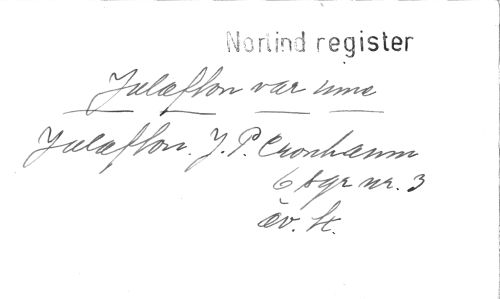 Norlind register
Julafton var inne
Julafton. J. P. Cronhamn
6 sgr nr. 3
äv. st.